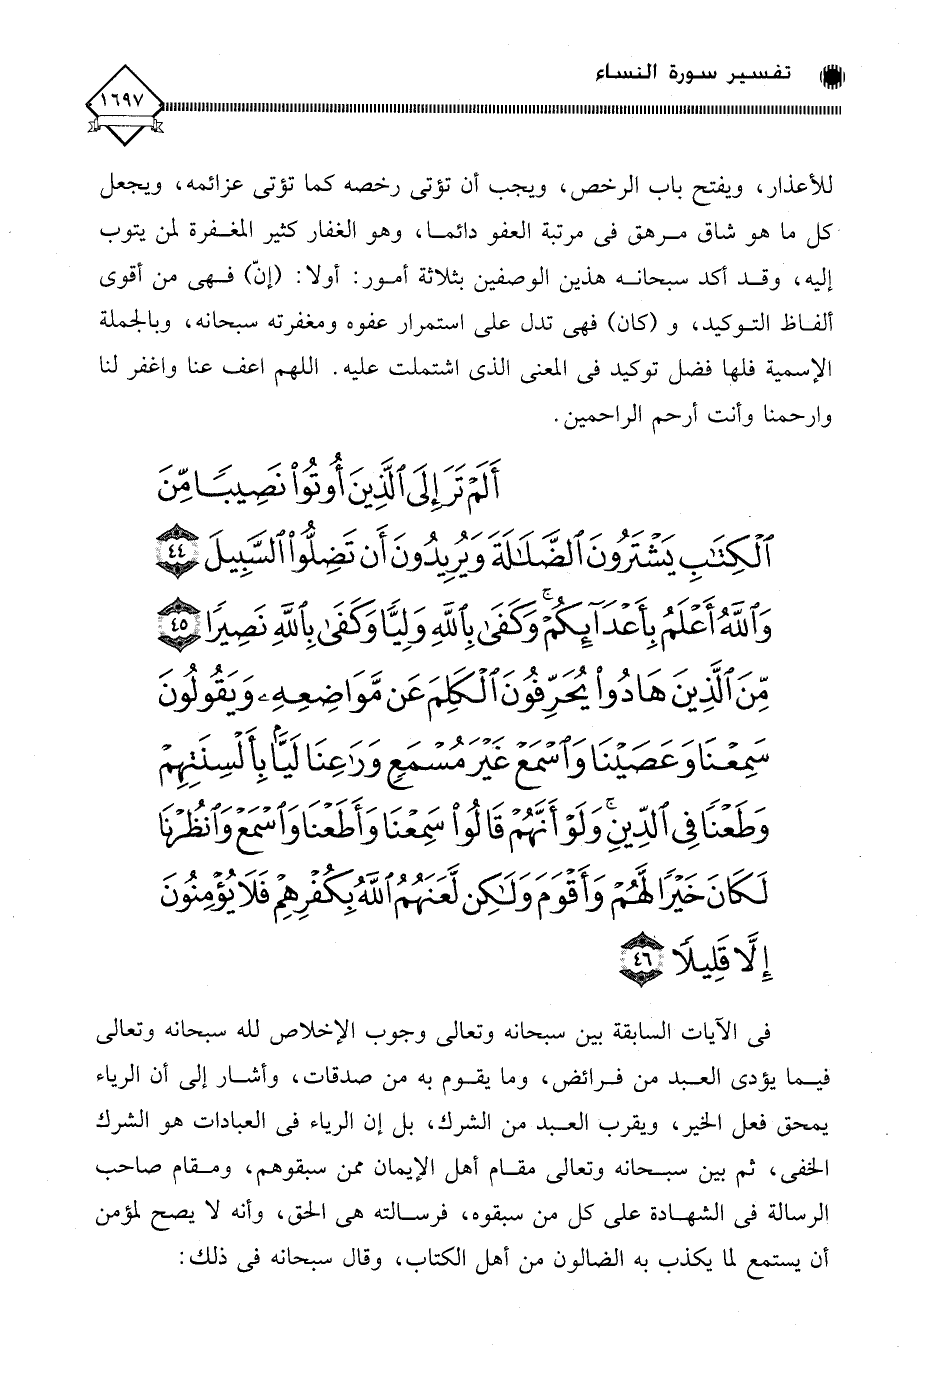 تفسير سورة النساء
١٦٩٧
للأعذار، ويفتح باب الرخص، ويجب أن تؤتى رخصه كما تؤتى عزائمه، ويجعل
كل ما هو شاق مرهق فى مرتبة العفو دائما، وهو الغفار كثير المغفرة لمن يتوب
إليه، وقد أكد سبحانه هذين الوصفين بثلاثة أمور: أولا: (إنّ) فهى من أقوى
ألفاظ التوكيد، و (كان) فهى تدل على استمرار عفوه ومغفرته سبحانه، وبالجملة
الإسمية فلها فضل توكيد فى المعنى الذى اشتملت عليه. اللهم اعف عنا واغفر لنا
وارحمنا وأنت أرحم الراحمين.
أَلَمْ تَرَ إِلَى ٱلَّذِينَ أُوتُوا۟ نَصِيبًا مِّنَ
ٱلْكِتَٰبِ يَشْتَرُونَ ٱلضَّلَٰلَةَ وَيُرِيدُونَ أَن تَضِلُّوا۟ ٱلسَّبِيلَ ٤٤
وَٱللَّهُ أَعْلَمُ بِأَعْدَآئِكُمْ ۚ وَكَفَىٰ بِٱللَّهِ وَلِيًّا وَكَفَىٰ بِٱللَّهِ نَصِيرًا ٤٥
مِّنَ ٱلَّذِينَ هَادُوا۟ يُحَرِّفُونَ ٱلْكَلِمَ عَن مَّوَاضِعِهِۦ وَيَقُولُونَ
سَمِعْنَا وَعَصَيْنَا وَٱسْمَعْ غَيْرَ مُسْمَعٍ وَرَٰعِنَا لَيًّۢا بِأَلْسِنَتِهِمْ
وَطَعْنًا فِى ٱلدِّينِ ۚ وَلَوْ أَنَّهُمْ قَالُوا۟ سَمِعْنَا وَأَطَعْنَا وَٱسْمَعْ وَٱنظُرْنَا
لَكَانَ خَيْرًا لَّهُمْ وَأَقْوَمَ وَلَٰكِن لَّعَنَهُمُ ٱللَّهُ بِكُفْرِهِمْ فَلَا يُؤْمِنُونَ
إِلَّا قَلِيلًا ٤٦
فى الآيات السابقة بين سبحانه وتعالى وجوب الإخلاص لله سبحانه وتعالى
فيما يؤدى العبد من فرائض، وما يقوم به من صدقات، وأشار إلى أن الرياء
يمحق فعل الخير، ويقرب العبد من الشرك، بل إن الرياء فى العبادات هو الشرك
الخفى، ثم بين سبحانه وتعالى مقام أهل الإيمان ممن سبقوهم، ومقام صاحب
الرسالة فى الشهادة على كل من سبقوه، فرسالته هى الحق، وأنه لا يصح لمؤمن
أن يستمع لما يكذب به الضالون من أهل الكتاب، وقال سبحانه فى ذلك: